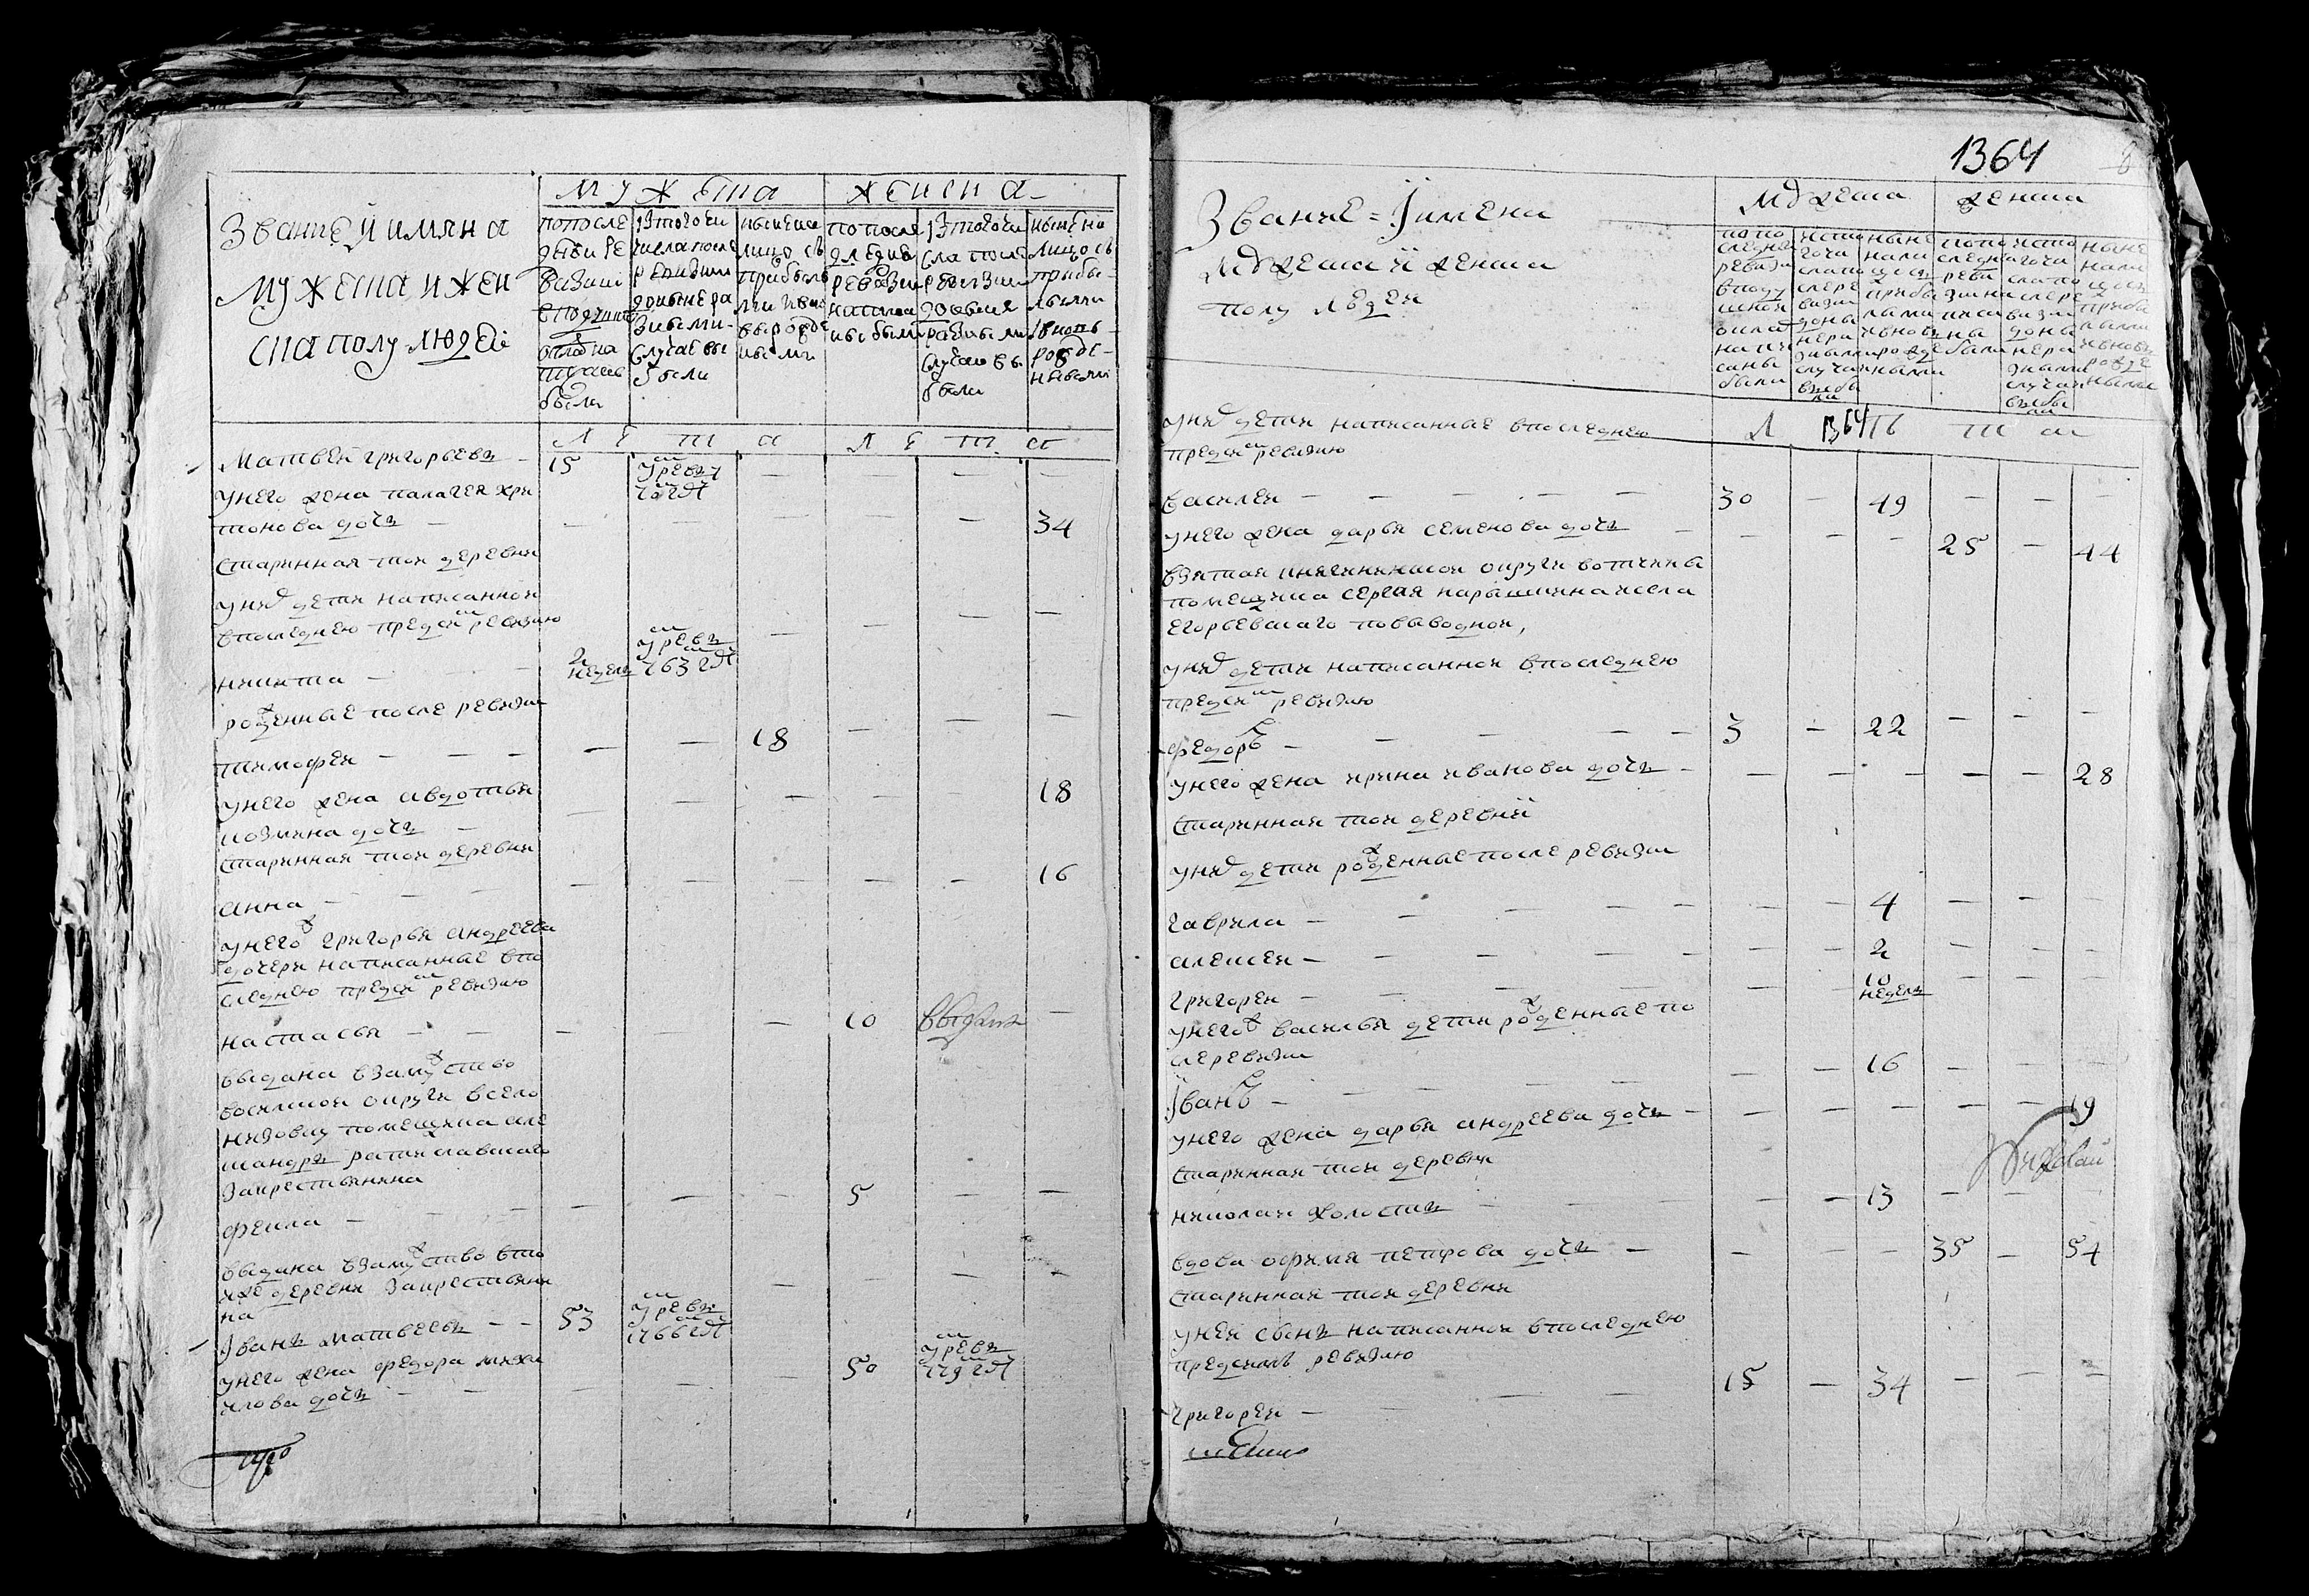 Звание и имяна
мужеска и жен
ска полу людеи
мужеска
женска
попосле
дней ре
визии
в подушно
оклад на
писаны
были
Изтого чи
числа после
ревизии
доныне ра
зными
случаеви
убыли
ныне на
лицо съ
прибыл
ми и вно
въ рожде
ными
по после
дней
ревизии
написа
ны были
Изтого чи
сла после
ревизии
доныне
разными
случаевъ
убыли
ныне на
лицо съ
прибы
лыми
и вновь
рожде
ными
лета
лета
Матвеи григорьевъ – 15 умре въ 70 году – – – –
унего жена палагея хри
тонова дочь – – – – – – 34
старинная тои деревни
унихъ дети написаннои
впоследнею предсимъ ревизию
никита – 2 недель умре въ 763 году – – – –
рожденные после ревизии
тимофеи – – – 18 – – –
унего жена авдотья
козмина дочь – – – – – – 18
старинная тои деревни
анна – – – – – – 16
унегожъ григорья андреева
дочери написанные впо
следнею предсимъ ревизию
настасья – – – – 10 выдана –
выдана взамужство
в округи всело
помещика але
ксандры
закрестьянина
фекла – – – – 5 – –
выдана взамужство втои
жъ деревни закрестьяни
на
Иванъ матвеевъ – – 53 умре въ 1766 году – – – –
унего жена федора миха
илова дочь – – – – 50 умре въ 779 году
1364
Звание = Имена
мужеска и женска
полу людеи
мужеска
женска
по по
следнеи
ревизи
в поду
шнои
оклад
напи
саны
были
исто
гочи
слапо
слере
визии
доны
нера
зными
случаи
выбы
ли
ныне
нали
цо съ
прибы
лыми
ивновь
рожде
ными
попо
следнеи
реви
зии на
писа
ны
были
исто
гочи
слапо
слере
визии
доны
нера
зными
случаи
выбы
ли
ныне
нали
цо съ
прибы
лыми
ивновь
рожде
ными
лета
1364
унихъ дети написанные впоследнею
предсимъ ревизию
василеи – – – – – 30 – 49 – – –
унего жена дарья семенова дочь – – – – 25 – 44
взятая округи вотчины
помещика сергея нарышкина исела
егорьевскаго повыводнои,
унихъ дети написаннои впоследнею
предсимъ ревизию
федоръ – – – – – 3 – 22 – – –
унего жена ирина иванова дочь – – – – – – 28
старинная тои деревни
унихъ дети рожденные после ревизии
гаврила – – – – – – – 4 – – –
алексеи – – – – – – – 2 – – –
григореи – – – – – – – 10 недель – – –
унегожъ василья дети рожденные по
слеревизии
Иванъ – – – – – – 16 – – –
унего жена дарья андреева дочь – – – – – – 19
старинная тои деревни
николаи холостъ – – – – 13 – – –
вдова офимя петрова дочь – – – – 35 – 54
старинная тои деревни
унеи сынъ написаннои впоследнею
предсимъ ревизию
григореи – – – 15 – 34 – – –